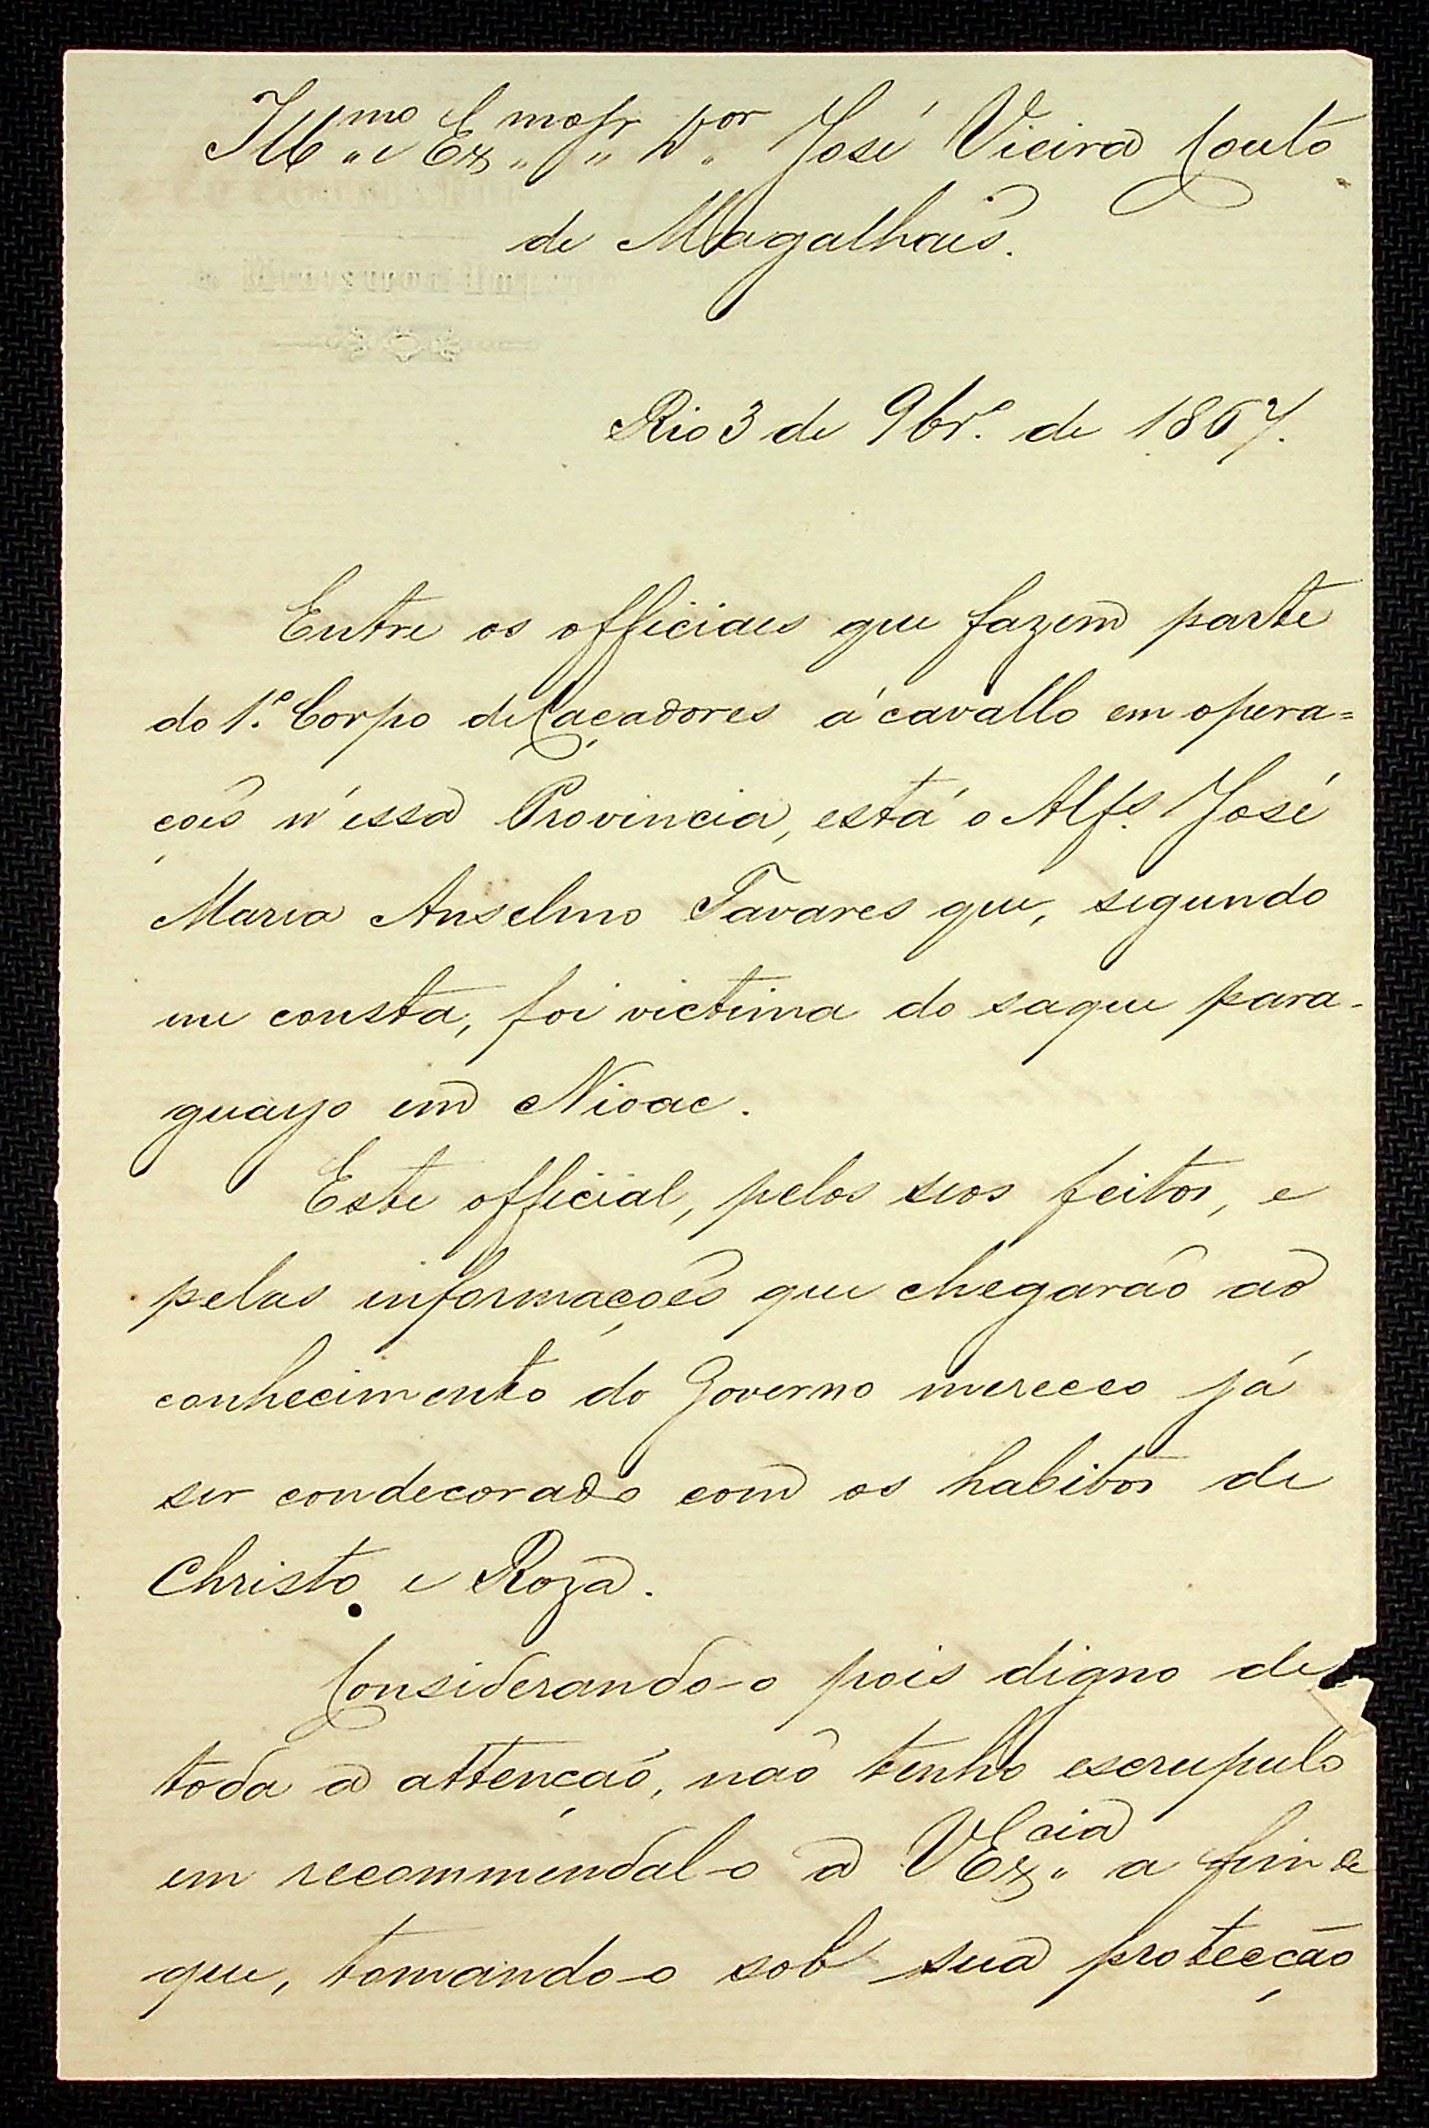 Illmo e Exmo Sr Dor José Vieira Couto
de Magalhães.
Rio 3 de 9br.º de 1867.
Entre os officiaes que fazem parte
do 1.º Corpo de Caçadores á cavallo em opera=
ções n'essa Provincia, está o Alfs. José
Maria Anselmo Tavares que, segundo
me consta, foi victima do saque para-
guayo em Nioac.
Este official, pelos seos feitos, e
pelas informações que chegarão ao
conhecimento do Governo mereceo já
ser condecorado com os habitos de
Christo e Roza.
Considerando-o pois digno de
toda a attenção, não tenho escrupulo
em recommendal-o a VExcia a fim de
que, tomando-o sob sua protecção